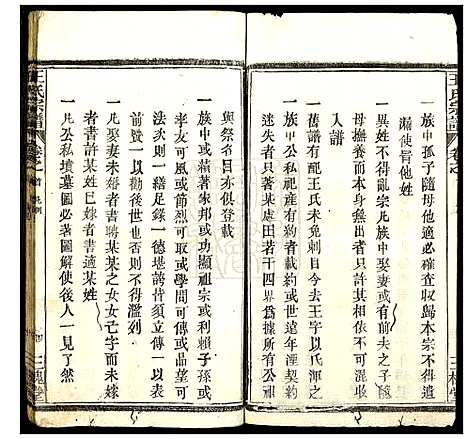 王氏宗譜
一族中孤子隨母他適查收歸本宗不得
漏使冐他姓
一異姓不得亂宗凡族中娶妻或有前夫之子同
母撫養而本身無出者只許其相依不得混
入譜
一舊譜有配王氏未免刺目今去王字以氏渾之
一族中公私祀產有者載約或世遠年湮契約
迷失者只載某處田若干四界為憑令衆所公知
與祭名目亦俱登載
一族中或有著於家邦或功顯祖宗或利賴子孫或
孝友可風或節烈可敬或學問可傳或忠厚可
法或則一繕足錄一德堪誇皆須立傳一以表
前贊一以勸後世也不得濫
一凡娶妻未婚者書聘某某之女女已字而未嫁
者書許某姓已嫁者書適某姓
一凡公私墳墓圖必著圖解使後人一見了然
王氏宗譜
三槐堂